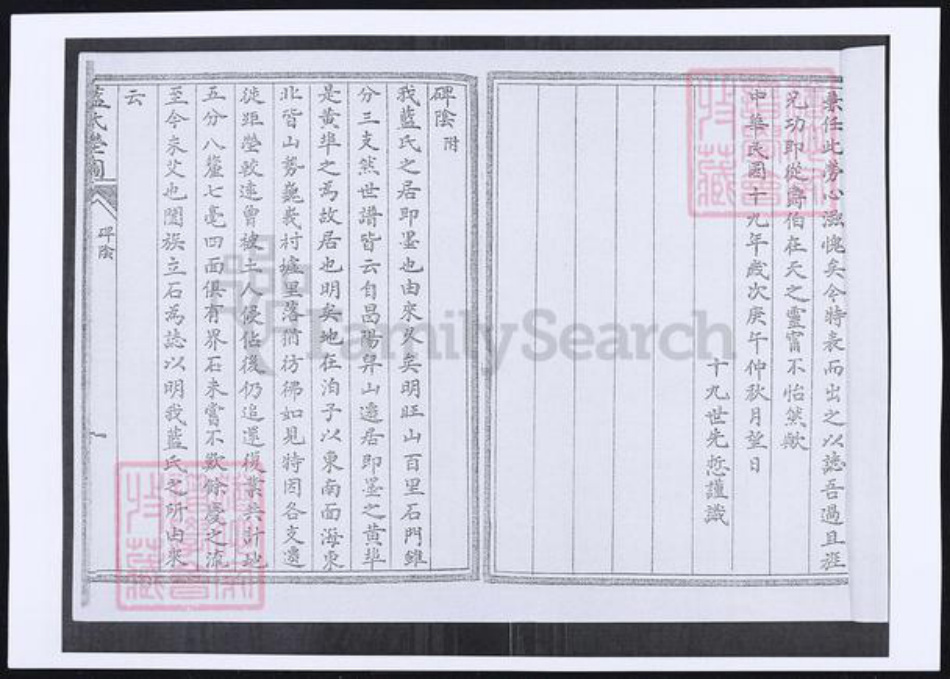 兼任此勞心滋愧矣今特表而出之以誌吾過且旌
兄功即從爵伯在天之靈寧不怡然歟
中華民國十九年歲次庚午仲秋月望日
十九世先悊謹識
碑陰 附
我藍氏之居即墨也由來久矣明旺山百里石門雖
分三支然世譜皆云自昌陽舁山遷居即墨之黃埠
是黃埠之為故居也明矣地在泊子以東南面海東
北皆山勢巍峩村墟里落猶彷彿如見特因各支遷
徙距塋較遠曾被土人侵佔後仍追還復業共計地
五分八釐七毫四面俱有界石未嘗不歎餘慶之流
至今未艾也闔族立石為誌以明我藍氏之所由來
云
藍氏塋圖
碑陰
一
FamilySearch